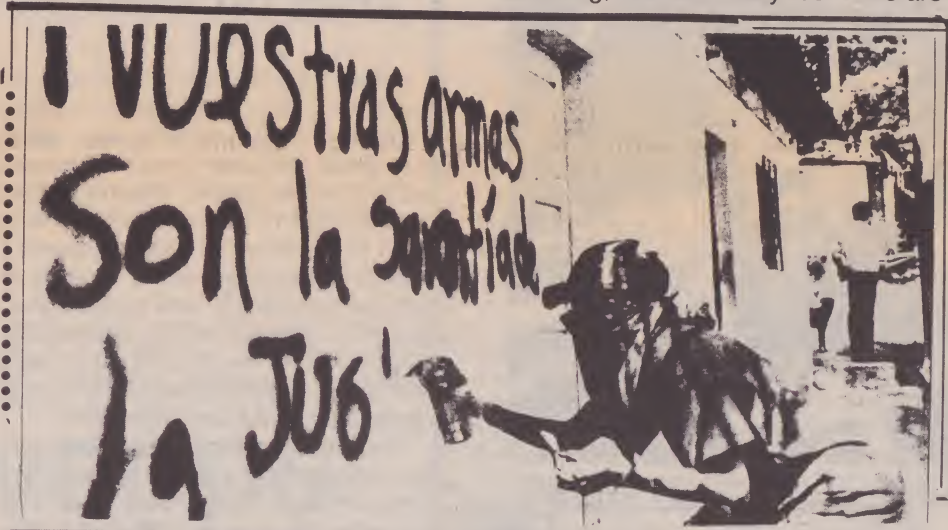 Nuestras armas
Son la garantía de
la JUS